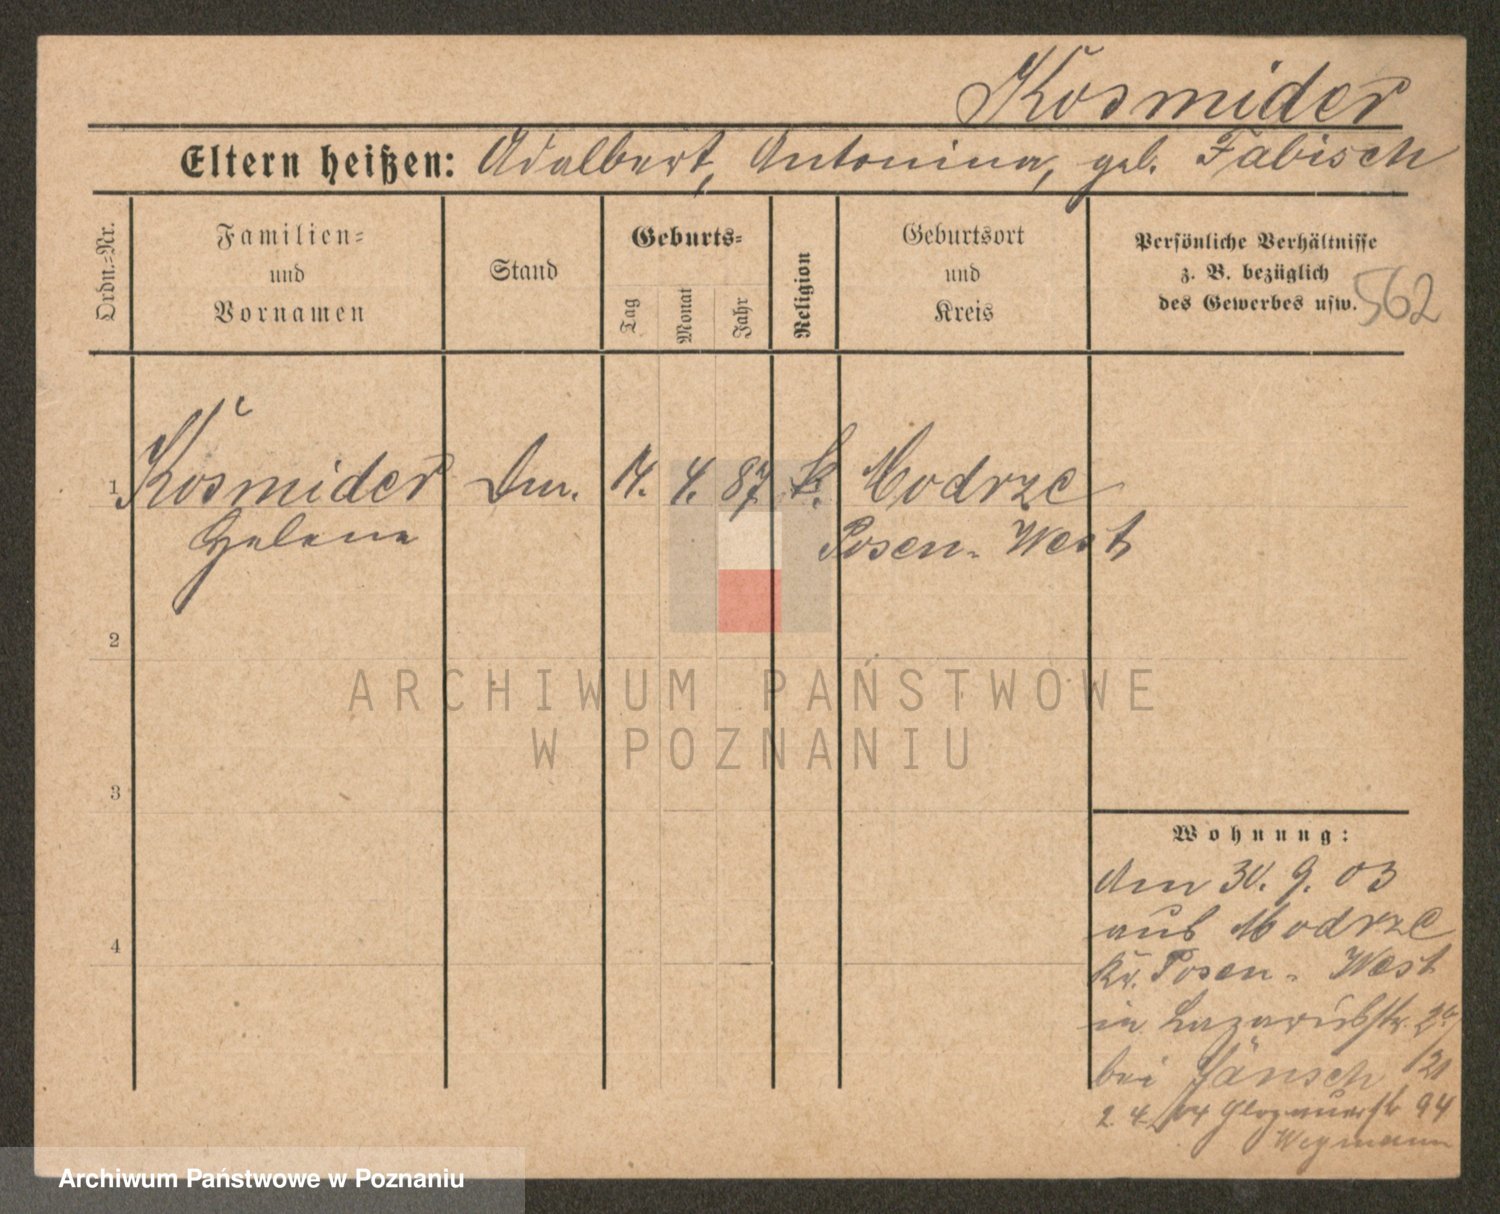 Kosmider
Eltern heißen: Adalbert, Antonina, geb. Fabisch
Ordn.-Nr.
Familien-
und
Vornamen
Stand
Geburts-
Tag
Monat
Jahr
Religion
Geburtsort
und
Kreis
Persönliche Verhältnisse
z. B. bezüglich
des Gewerbes usw.
562
1 Kosmider 4. 87 k. Modrze
Helene Posen-West
2
3
4
Wohnung:
den 30. 9. 03
aus Modrze
Kr. Posen-West
in Lazarusstr.
bei Jänsch
2. 4. 04 Glogauerstr 94
Wegmann
ARCHIWUM PAŃSTWOWE
W POZNANIU
Archiwum Państwowe w Poznaniu